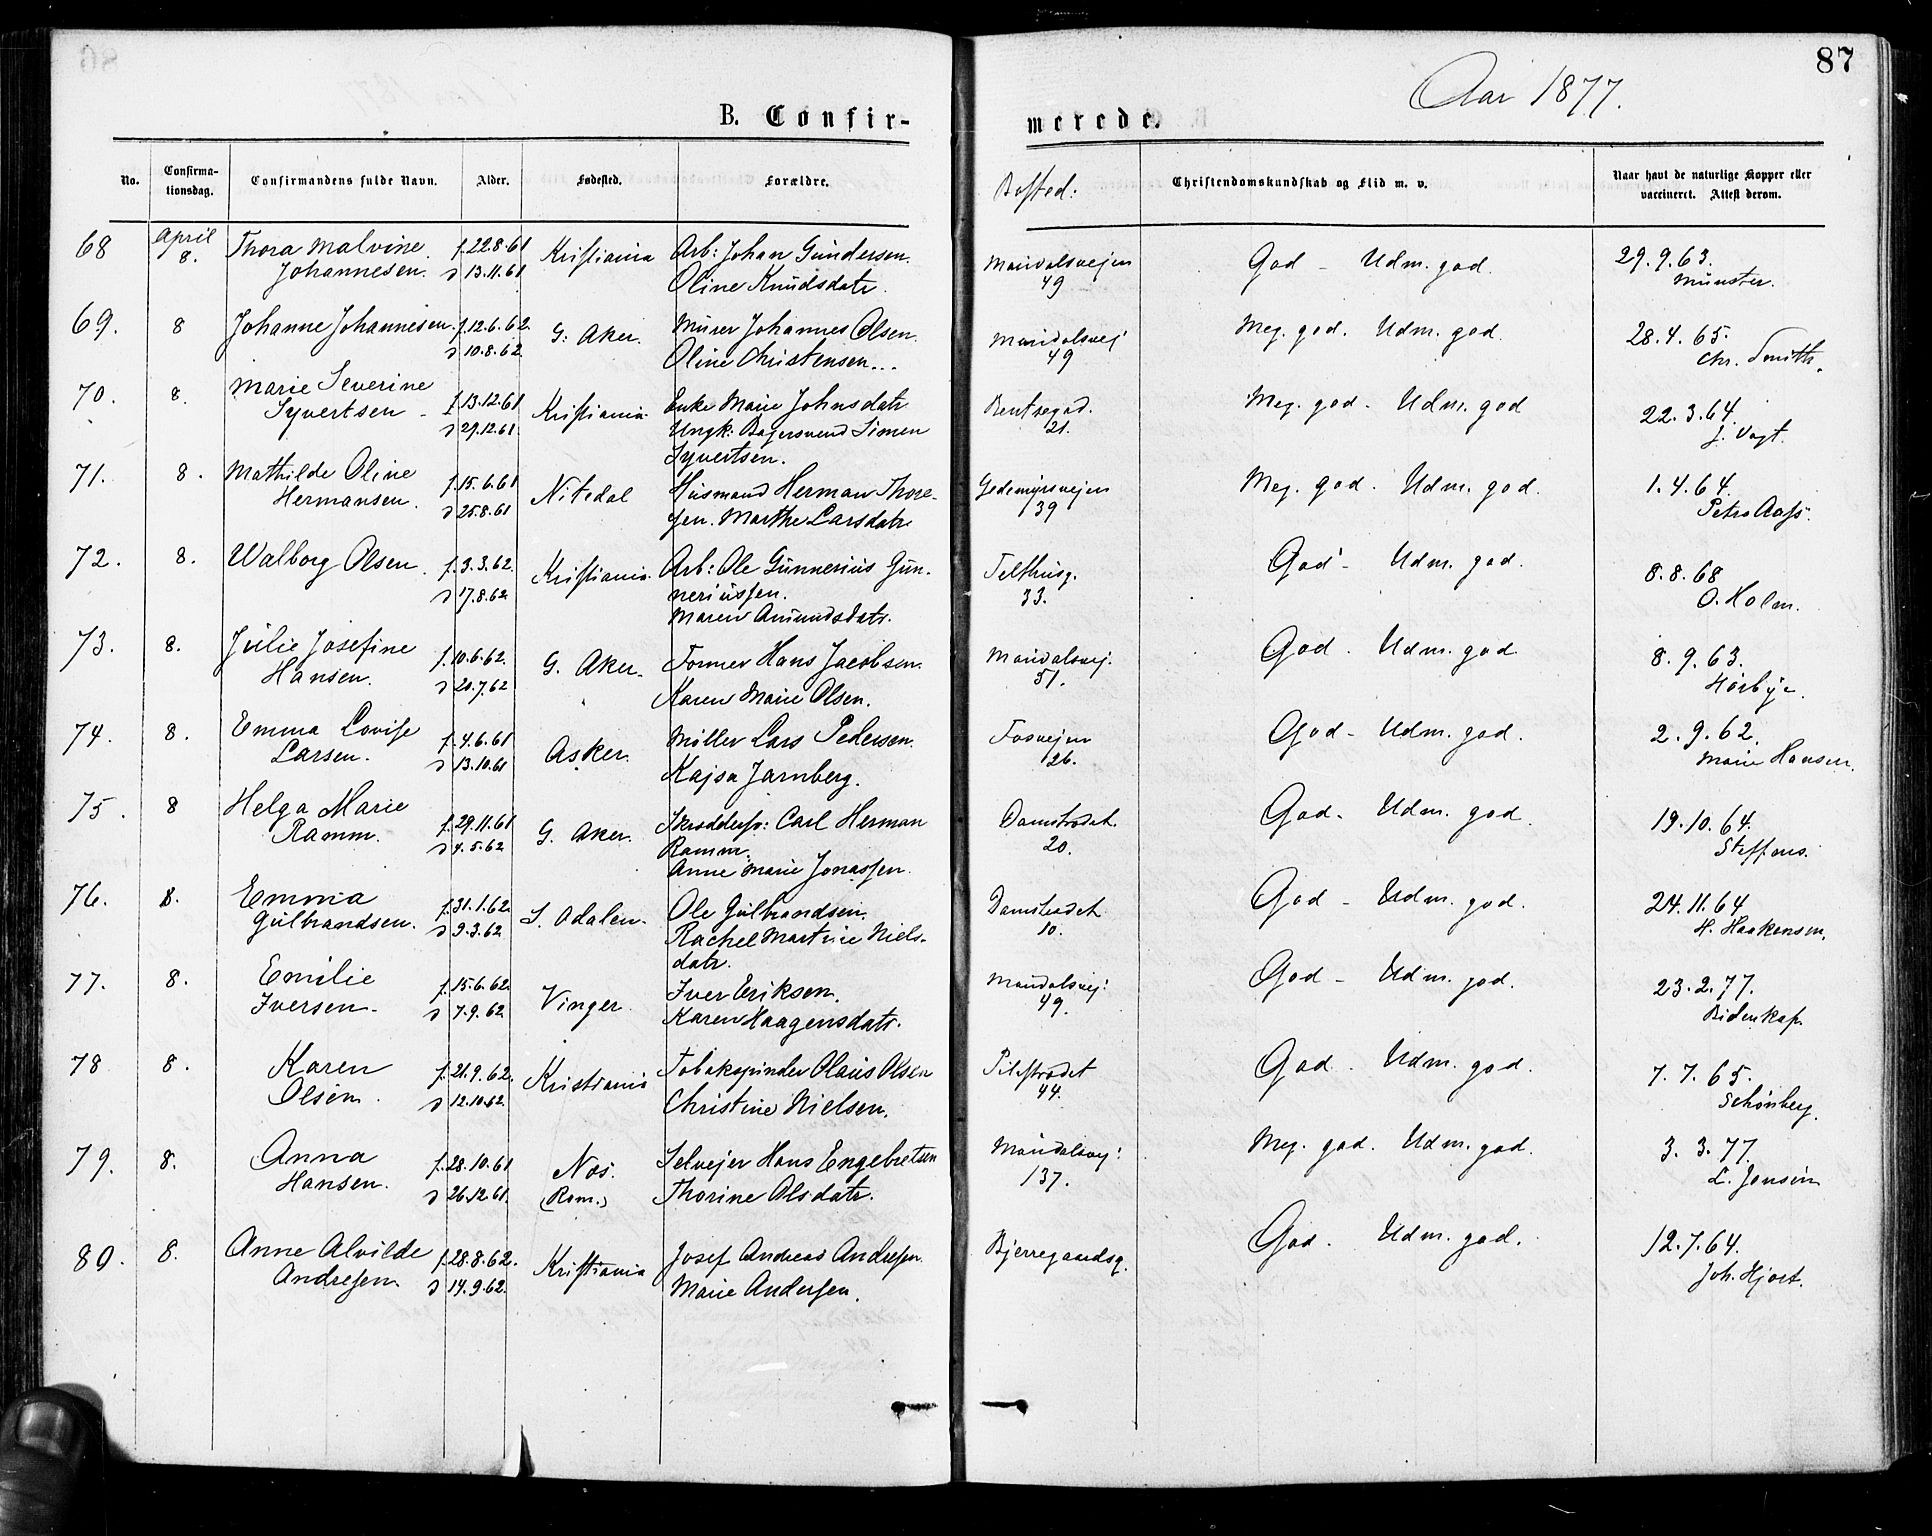 87
Aar 1877.
B. Confir-
merede.
No.
Confirma-
tionsdag.
Confirmandens fulde Navn.
Alder.
Fødested.
Forældre.
Bosted:
Christendomskundskab og Flid m. v.
Naar havt de naturlige Kopper eller
vaccineret. Attest derom.
68 April 8. Thora Malvine f. 22.8.61 Kristiania Arb: Johan Gundersen. Maridalsvejen God - Udm. god. 29.9.63.
Johannesen. d 13.11.61 Oline Knudsdatr. 49 Münster.
69. 8 Johanne Johannesen. f. 12.6.62. G: Aker. Murer Johannes Olsen. Maridalsvej Meg. god. Udm. god. 28.4.65.
d 10.8.62. Oline Christensen... 49 Chr. Smith.
70. 8. Marie Severine f. 13.12.61 Kristiania. Enke Marie Johnsdatr Bentsegad. Meg. god. Udm. god 22.3.64.
Syvertsen - d 29.12.61. Ungk: Bagersvend Simen 21. J. Vogt.
Syvertsen.
71. 8. Mathilde Oline f. 15.6.61 Nitedal Husmand Herman Thore- Meg. god. Udm. god. 1.4.64.
Hermansen. d 25.8.61 sen. Marthe Larsdatr 39
72. 8. Walborg Olsen. f. 3.3.62. Kristiania. Arb: Ole Gunnerius Gun- Telthusg. God - Udm. god. 8.8.68
d 17.8.62 neriussen. 33. O. Holm.
Maren Amundsdatr.
73. 8. Julie Josefine f. 10.6.62. G. Aker. Former Hans Jacobsen. Maridalsvej. God. Udm. god. 8.9.63.
Hansen. d 20.7.62 Karen Marie Olsen. 51. Hørbye.
74. 8. Emma Lovise f. 4.6.61 Asker. Møller Lars Pedersen. Fosvejen God - Udm. god. 2.9.62.
Larsen. d 13.10.61 Kajsa Jarnberg. 26. Marie Hansen.
75. 8 Helga Marie f. 29.11.61 G. Aker. Skrædders: Carl Herman Damstrædet. God - Udm. god. 19.10.64.
Ramm. d 4.5.62 Ramm. 20. Steffens.
Anne Marie Jonassen.
76. 8. Emma f. 31.1.62. S. Odalen. Ole Gulbrandsen. Damstrædet. God - Udm. god. 24.11.64
Gulbrandsen. d 9.3.62. Rachel Martine Niels- 10. H. Haakensen.
datr.
77. 8. Emilie f. 15.6.62. Vinger. Iver Eriksen. Maridalsvej: God - Udm. god. 23.2.77.
Iversen - d 7.9.62. Karen Haagensdatr. 49. Bidenkap.
78 8. Karen f. 21.9.62. Kristiania Tobakspinder Olaus Olsen Pilestrædet God. Udm. god. 7.7.65.
Olsen. d 12.10.62. Christine Nielsen. 44. Schønberg.
79. 8. Anna f. 28.10.61 Næs. Selvejer Hans Engebretsen Maridalsvej: Meg. god. Udm. god. 3.3.77.
Hansen. d 26.12.61. (Rom.) Thorine Olsdatr. 137. L. Jensen
80. 8. Anne Alvilde f. 28.8.62. Kristiania Josef Andreas Andresen. Bjerregaardsg. God. Udm. god. 12.7.64.
Andresen. d 14.9.62. Marie Andersen. Joh. Hjort.